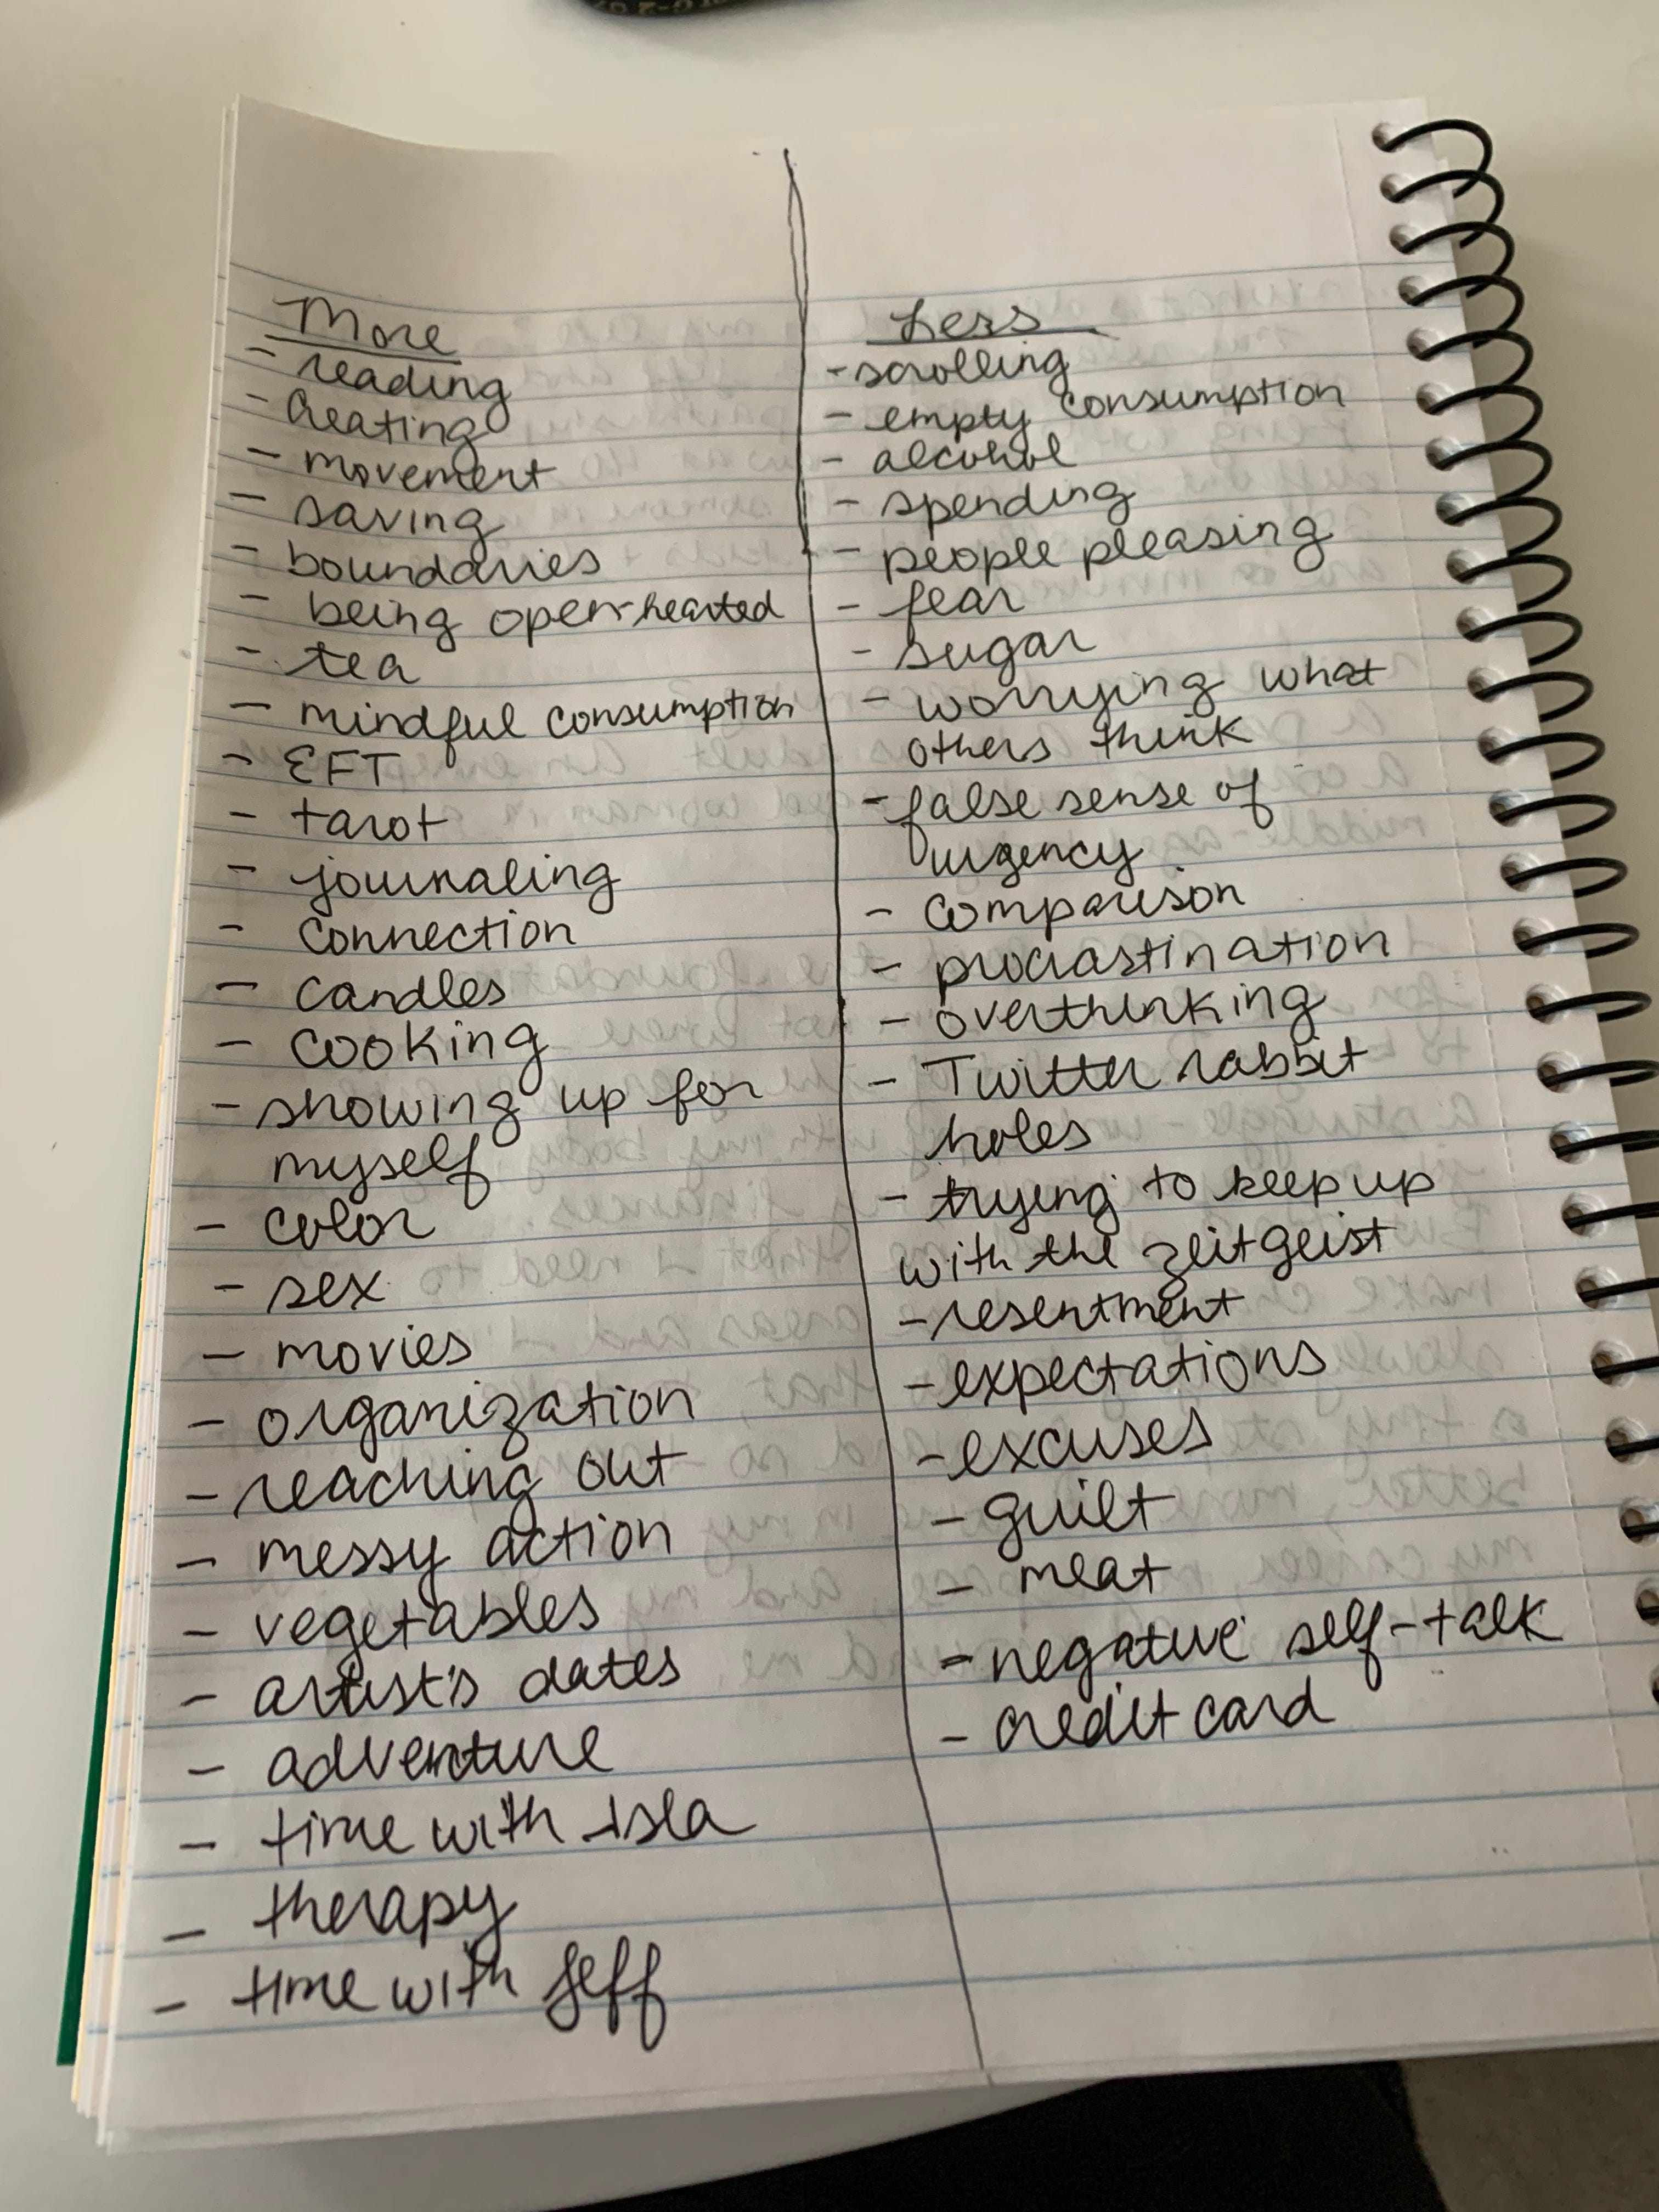 More
- reading
- Creating
- movement
- saving
- boundaries
- being open-hearted
- tea
- mindful consumption
- EFT
- tarot
- journaling
- connection
- candles
- cooking
- showing up for
myself
- color
- sex
- movies
- organization
- reaching out
- messy action
- vegetables
- artist's dates
- adventure
- time with Isla
- therapy
- time with Jeff
Less
- scrolling
- empty consumption
- alcohol
- spending
- people pleasing
- fear
- sugar
- worrying what
others think
- false sense of
urgency
- comparison
- procrastination
- overthinking
- Twitter rabbit
holes
- trying to keep up
with the zeitgeist
- resentment
- expectations
- excuses
- guilt
- meat
- negative self-talk
- credit card